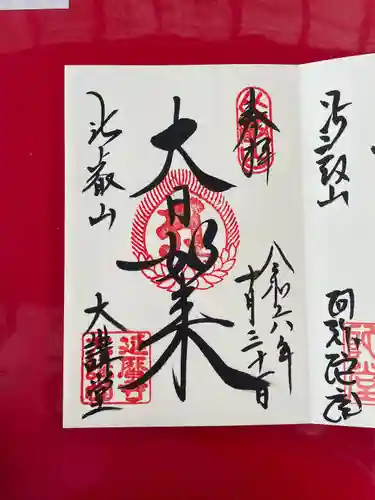 奉拝
令和六年
十月三十一日
大日如来
比叡山
大講堂
比叡山
阿弥陀堂